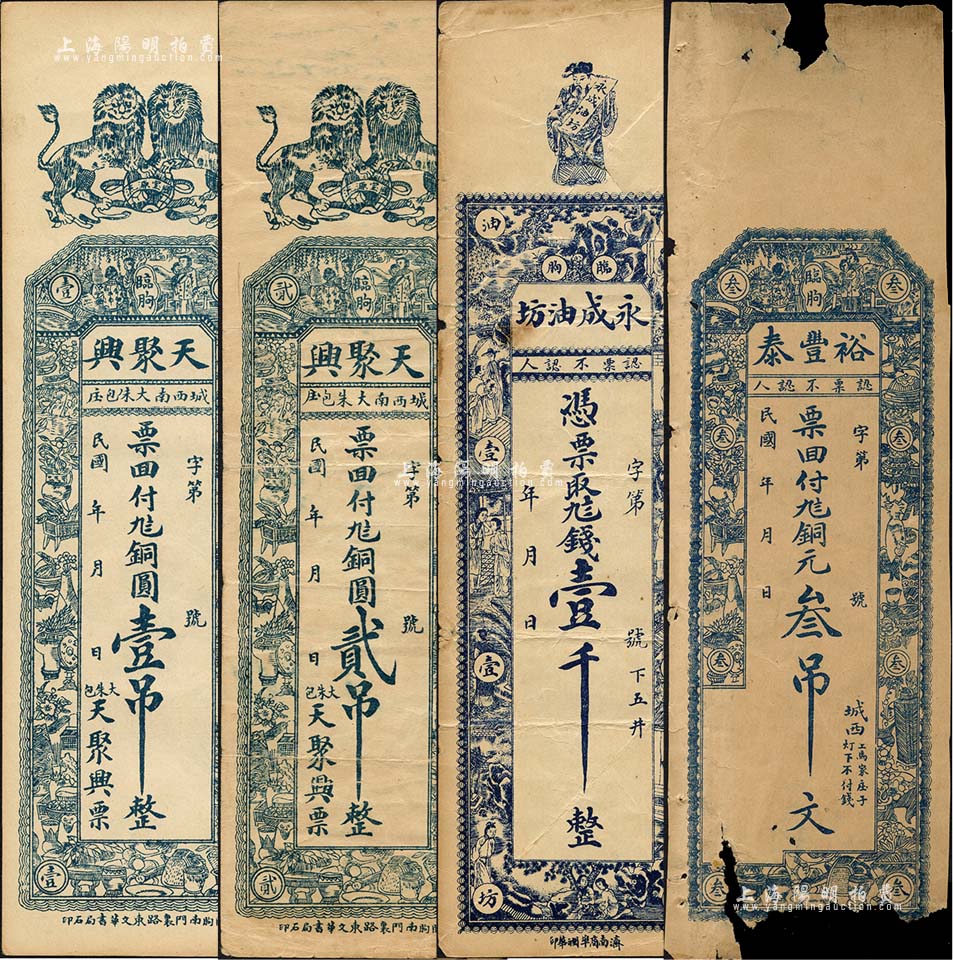 上海陽明拍賣
www.yangmingauction.com
臨朐
壹
天聚興
城西南大朱包庄
字第 號
票回付九銅圓壹吊整
民國 年 月 日
大朱包
天聚興票
壹
朐南門裏路東文華書局石印
臨朐
貳
天聚興
城西南大朱包庄
字第 號
票回付九銅圓貳吊整
民國 年 月 日
大朱包
天聚興票
貳
朐南門裏路東文華書局石印
永成油坊
油
臨朐
永成油坊
認票不認人
字第 號
下五井
憑票取九錢壹千整
年 月 日
壹
壹
坊
上海陽明拍賣
www.yangmingauction.com
叁
臨朐
叁
裕豐泰
認票不認人
字第 號
票回付九銅元叁吊文
民國 年 月 日
城西
上馬家庄子
灯下不付錢
叁
叁
叁
叁
叁
叁
上海陽明拍賣
www.yangmingauction.com